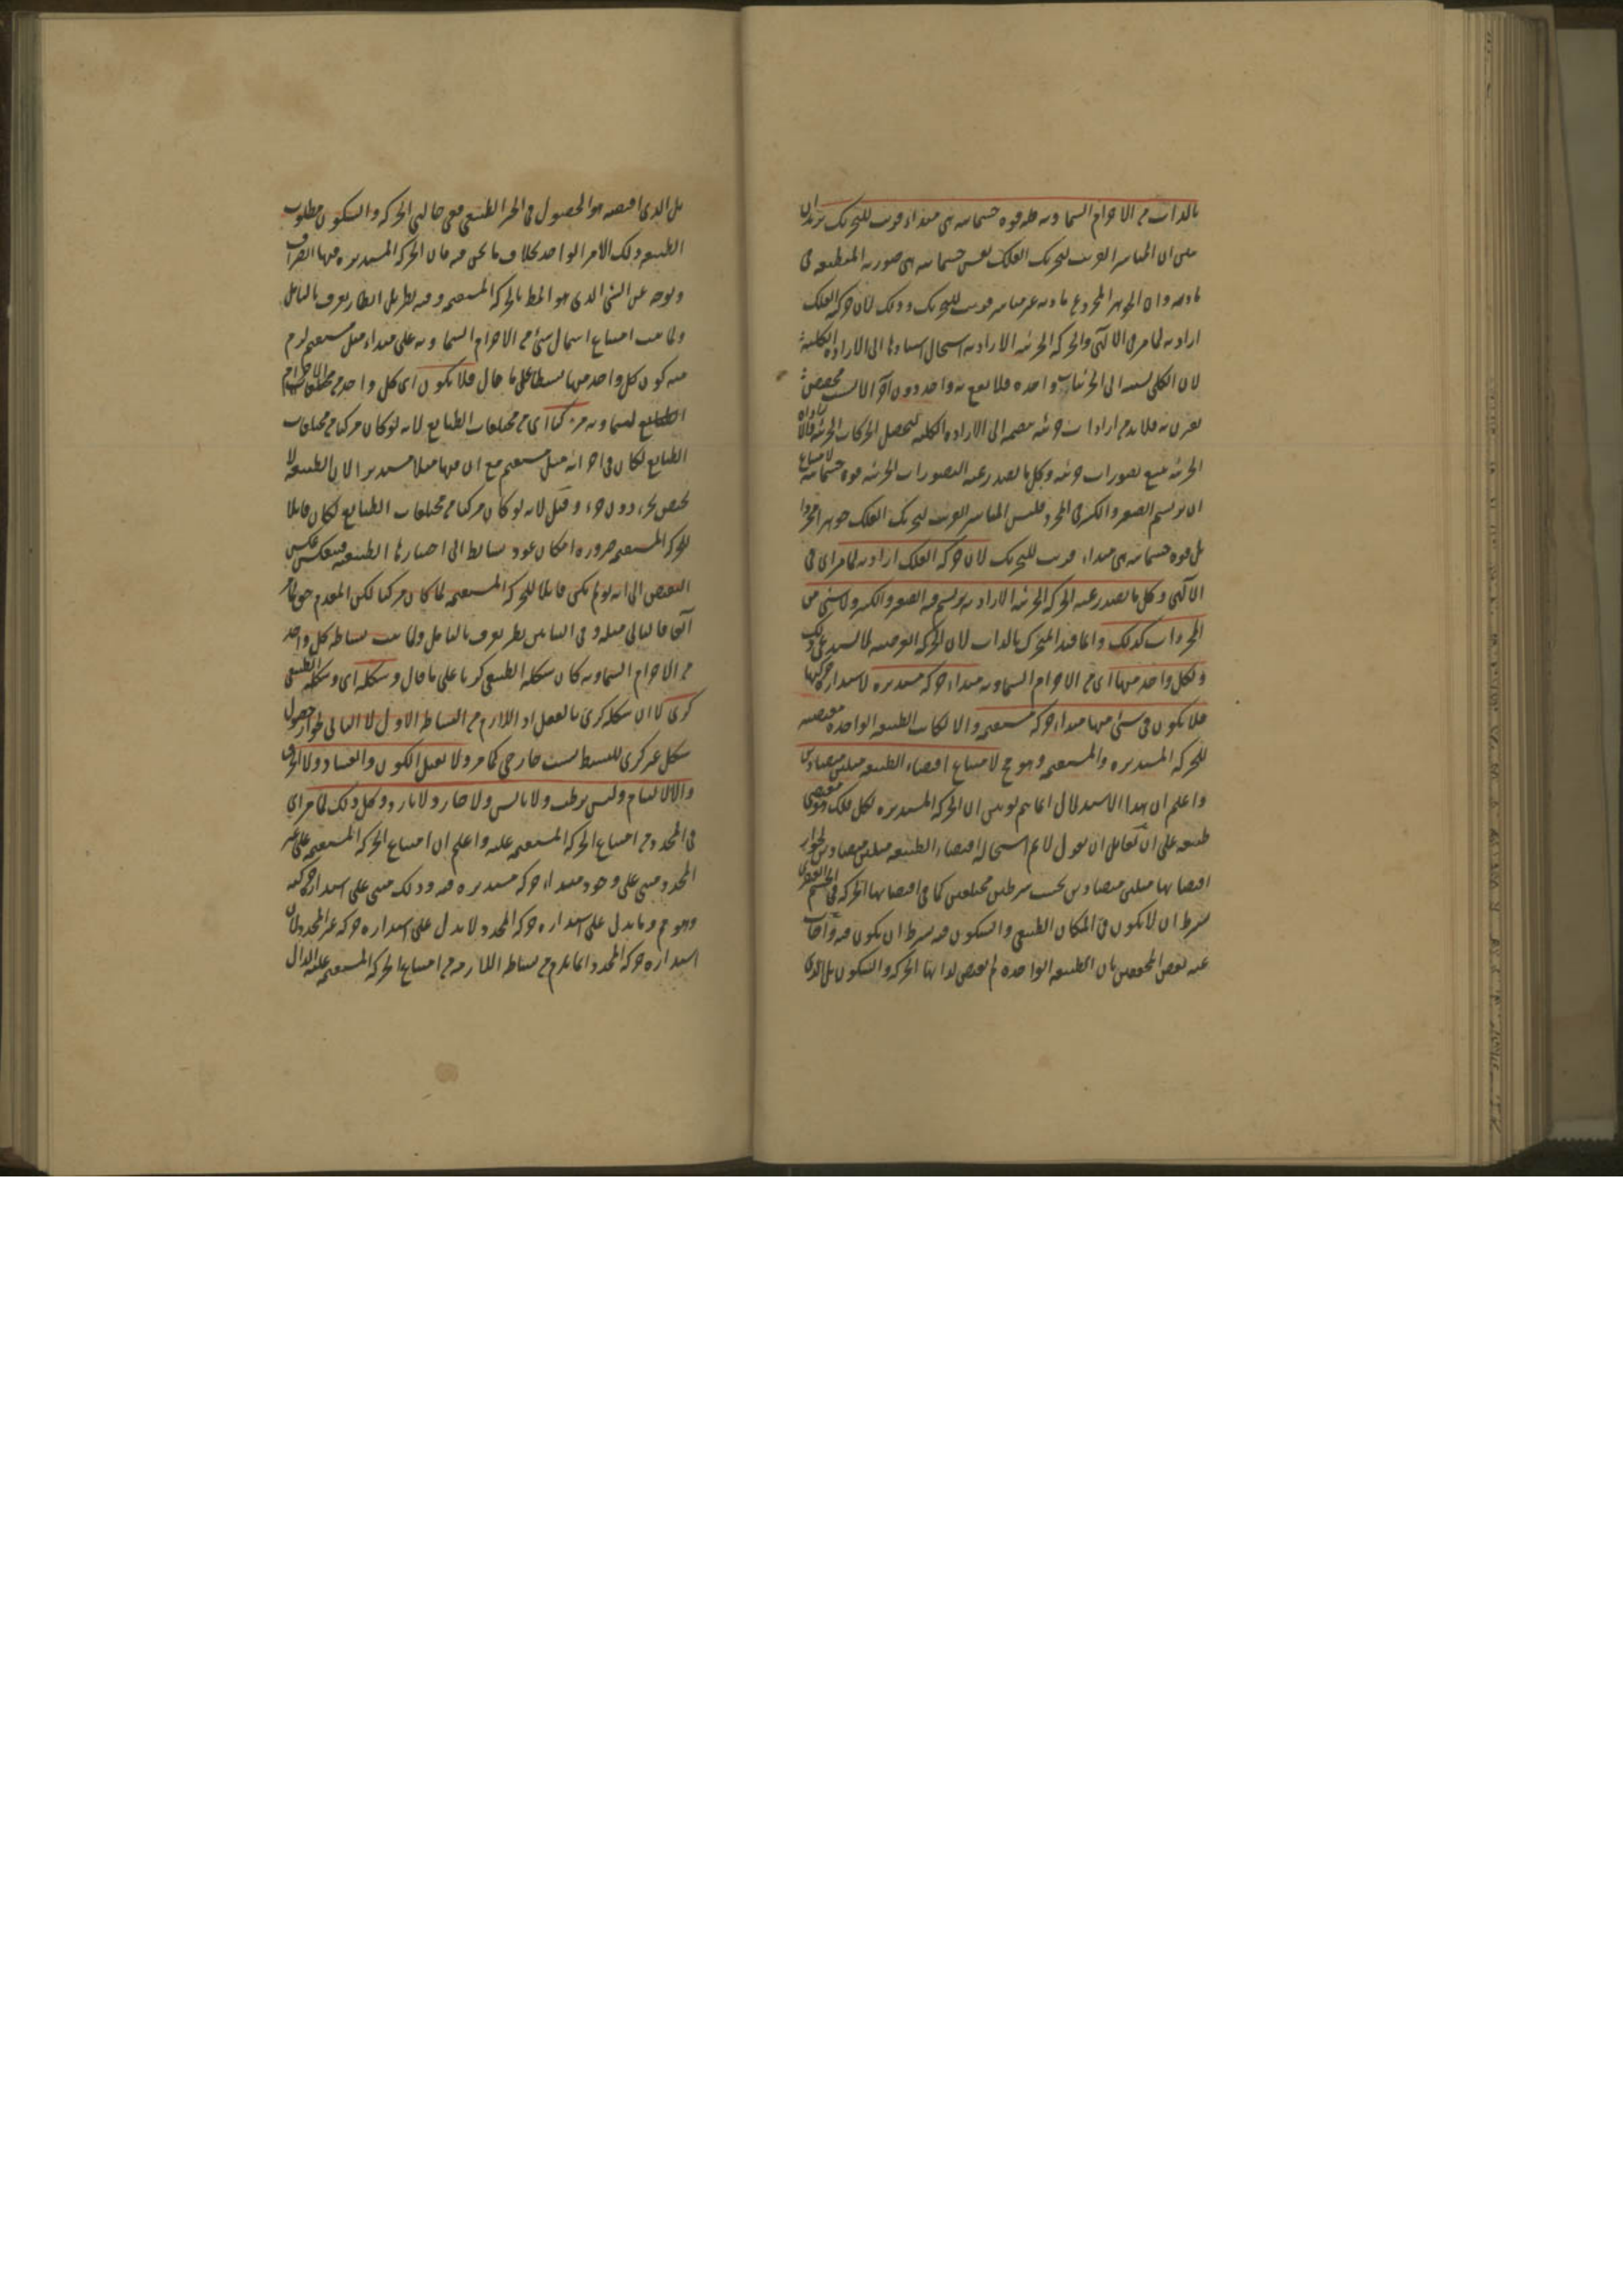 بالذات من الاجرام السماوية فله قوة جسمانية هى مبداء قريب للتحريك يريد ان
يبين ان المباشر القريب لتحريك الفلك نفس جسمانية هى صورته المنطبعة فى
مادته وان الجوهر المجرد عن مادته غير مباشر قريب للتحريك وذلك لان حركة الفلك
ارادية لما مر فى الالهى والحركة الجزئية الارادية استحال استنادها الى الارادة الكلية
لان الكلى نسبته الى الجزئيات واحدة فلا يقع به واحد دون آخر الا لسبب مخصص
يقترن به فلا بد من ارادات جزئية منضمة الى الارادة الكلية لتحصل الحركات الجزئية والارادة
الجزئية تتبع تصورات جزئية وكل ما يصدر عنه التصورات الجزئية قوة جسمانية لامتناع
ان يرتسم الصغر والكبر فى المجرد فليس المباشر القريب لتحريك الفلك جوهرا مجردا
بل قوة جسمانية هى مبداء قريب للتحريك لان حركة الفلك ارادية لما مر اى فى
الالهى وكل ما يصدر عنه الحركة الجزئية الارادية يرتسم فيه الصغر والكبر ولا شئ من
المجردات كذلك وانما قيد المتحرك بالذات لان الحركة العرضية لا تستدعى ذلك
ولكل واحد منها اى من الاجرام السماوية مبداء حركة مستديرة لاستدارة حركتها
فلا يكون فى شئ منها مبداء حركة مستقيمة والا لكانت الطبيعة الواحدة مقتضية
للحركة المستديرة والمستقيمة وهو مح لامتناع اقتضاء الطبيعة ميلين متضادين
واعلم ان هذا الاستدلال انما يتم لو بين ان الحركة المستديرة لكل فلك هو مقتضى
طبعه على ان لقائل ان يقول لا نم استحالة اقتضاء الطبيعة ميلين متضادين لجواز
اقتضائها ميلين متضادين بحسب شرطين مختلفين كما فى اقتضائها الحركة فى الجسم العنصرى
بشرط ان لا يكون فى المكان الطبيعى والسكون فيه بشرط ان يكون فيه واجاب
عنه بعض المحققين بان الطبيعة الواحدة لم تقتض لذاتها الحركة والسكون بل الذى
بل الذى اقتضته هو الحصول فى الحيز الطبيعى ففى حالتى الحركة والسكون مطلوب
الطبيعة ذلك الامر الواحد بخلاف ما نحن فيه فان الحركة المستديرة فيها انصراف
وتوجه عن الشئ الذى هو المط بالحركة المستقيمة وفيه نظر بل انظار يعرف بالتامل
ولما ثبت امتناع اشتمال شئ من الاجرام السماوية على مبداء ميل مستقيم لزم
منه كون كل واحد منها بسيطا على ما قال فلا يكون اى كل واحد من الاجرام
السماوية مركبا اى من مختلفات الطبايع لانه لو كان مركبا من مختلفات
الطبايع لكان فى اجزائه ميل مستقيم مع ان فيها ميلا مستديرا لان الطبيعة لا
تختص بجزء دون جزء وقيل لانه لو كان مركبا من مختلفات الطبايع لكان قابلا
للحركة المستقيمة ضرورة امكان عود بسائط الى احيازها الطبيعية فينعكس بعكس
النقيض الى انه لو لم يكن قابلا للحركة المستقيمة لما كان مركبا لكن المقدم حق لما مر
آنفا فالتالى مثله وفى التاليين نظر يعرف بالتامل ولما ثبت بساطة كل واحد
من الاجرام السماوية كان شكله الطبيعى كريا على ما قال وشكله اى وشكله الطبيعى
كرى لا ان شكله كرى بالفعل اذ اللازم من البساطة الاول لا الثانى لجواز حصول
شكل غير كرى للبسيط بسبب خارجى كما مر ولا يقبل الكون والفساد ولا الخرق
والالتيام وليس برطب ولا يابس ولا حار ولا بارد وكل ذلك لما مر اى
فى المحدد من امتناع الحركة المستقيمة عليه واعلم ان امتناع الحركة المستقيمة على غير
المحدد مبنى على وجود مبداء حركة مستديرة فيه وذلك مبنى على استدارة حركته
وهو مم وما يدل على استدارة حركة المحدد لا يدل على استدارة حركة غير المحدد لان
استدارة حركة المحدد انما يلزم من بساطته اللازمة من امتناع الحركة المستقيمة عليه الدال